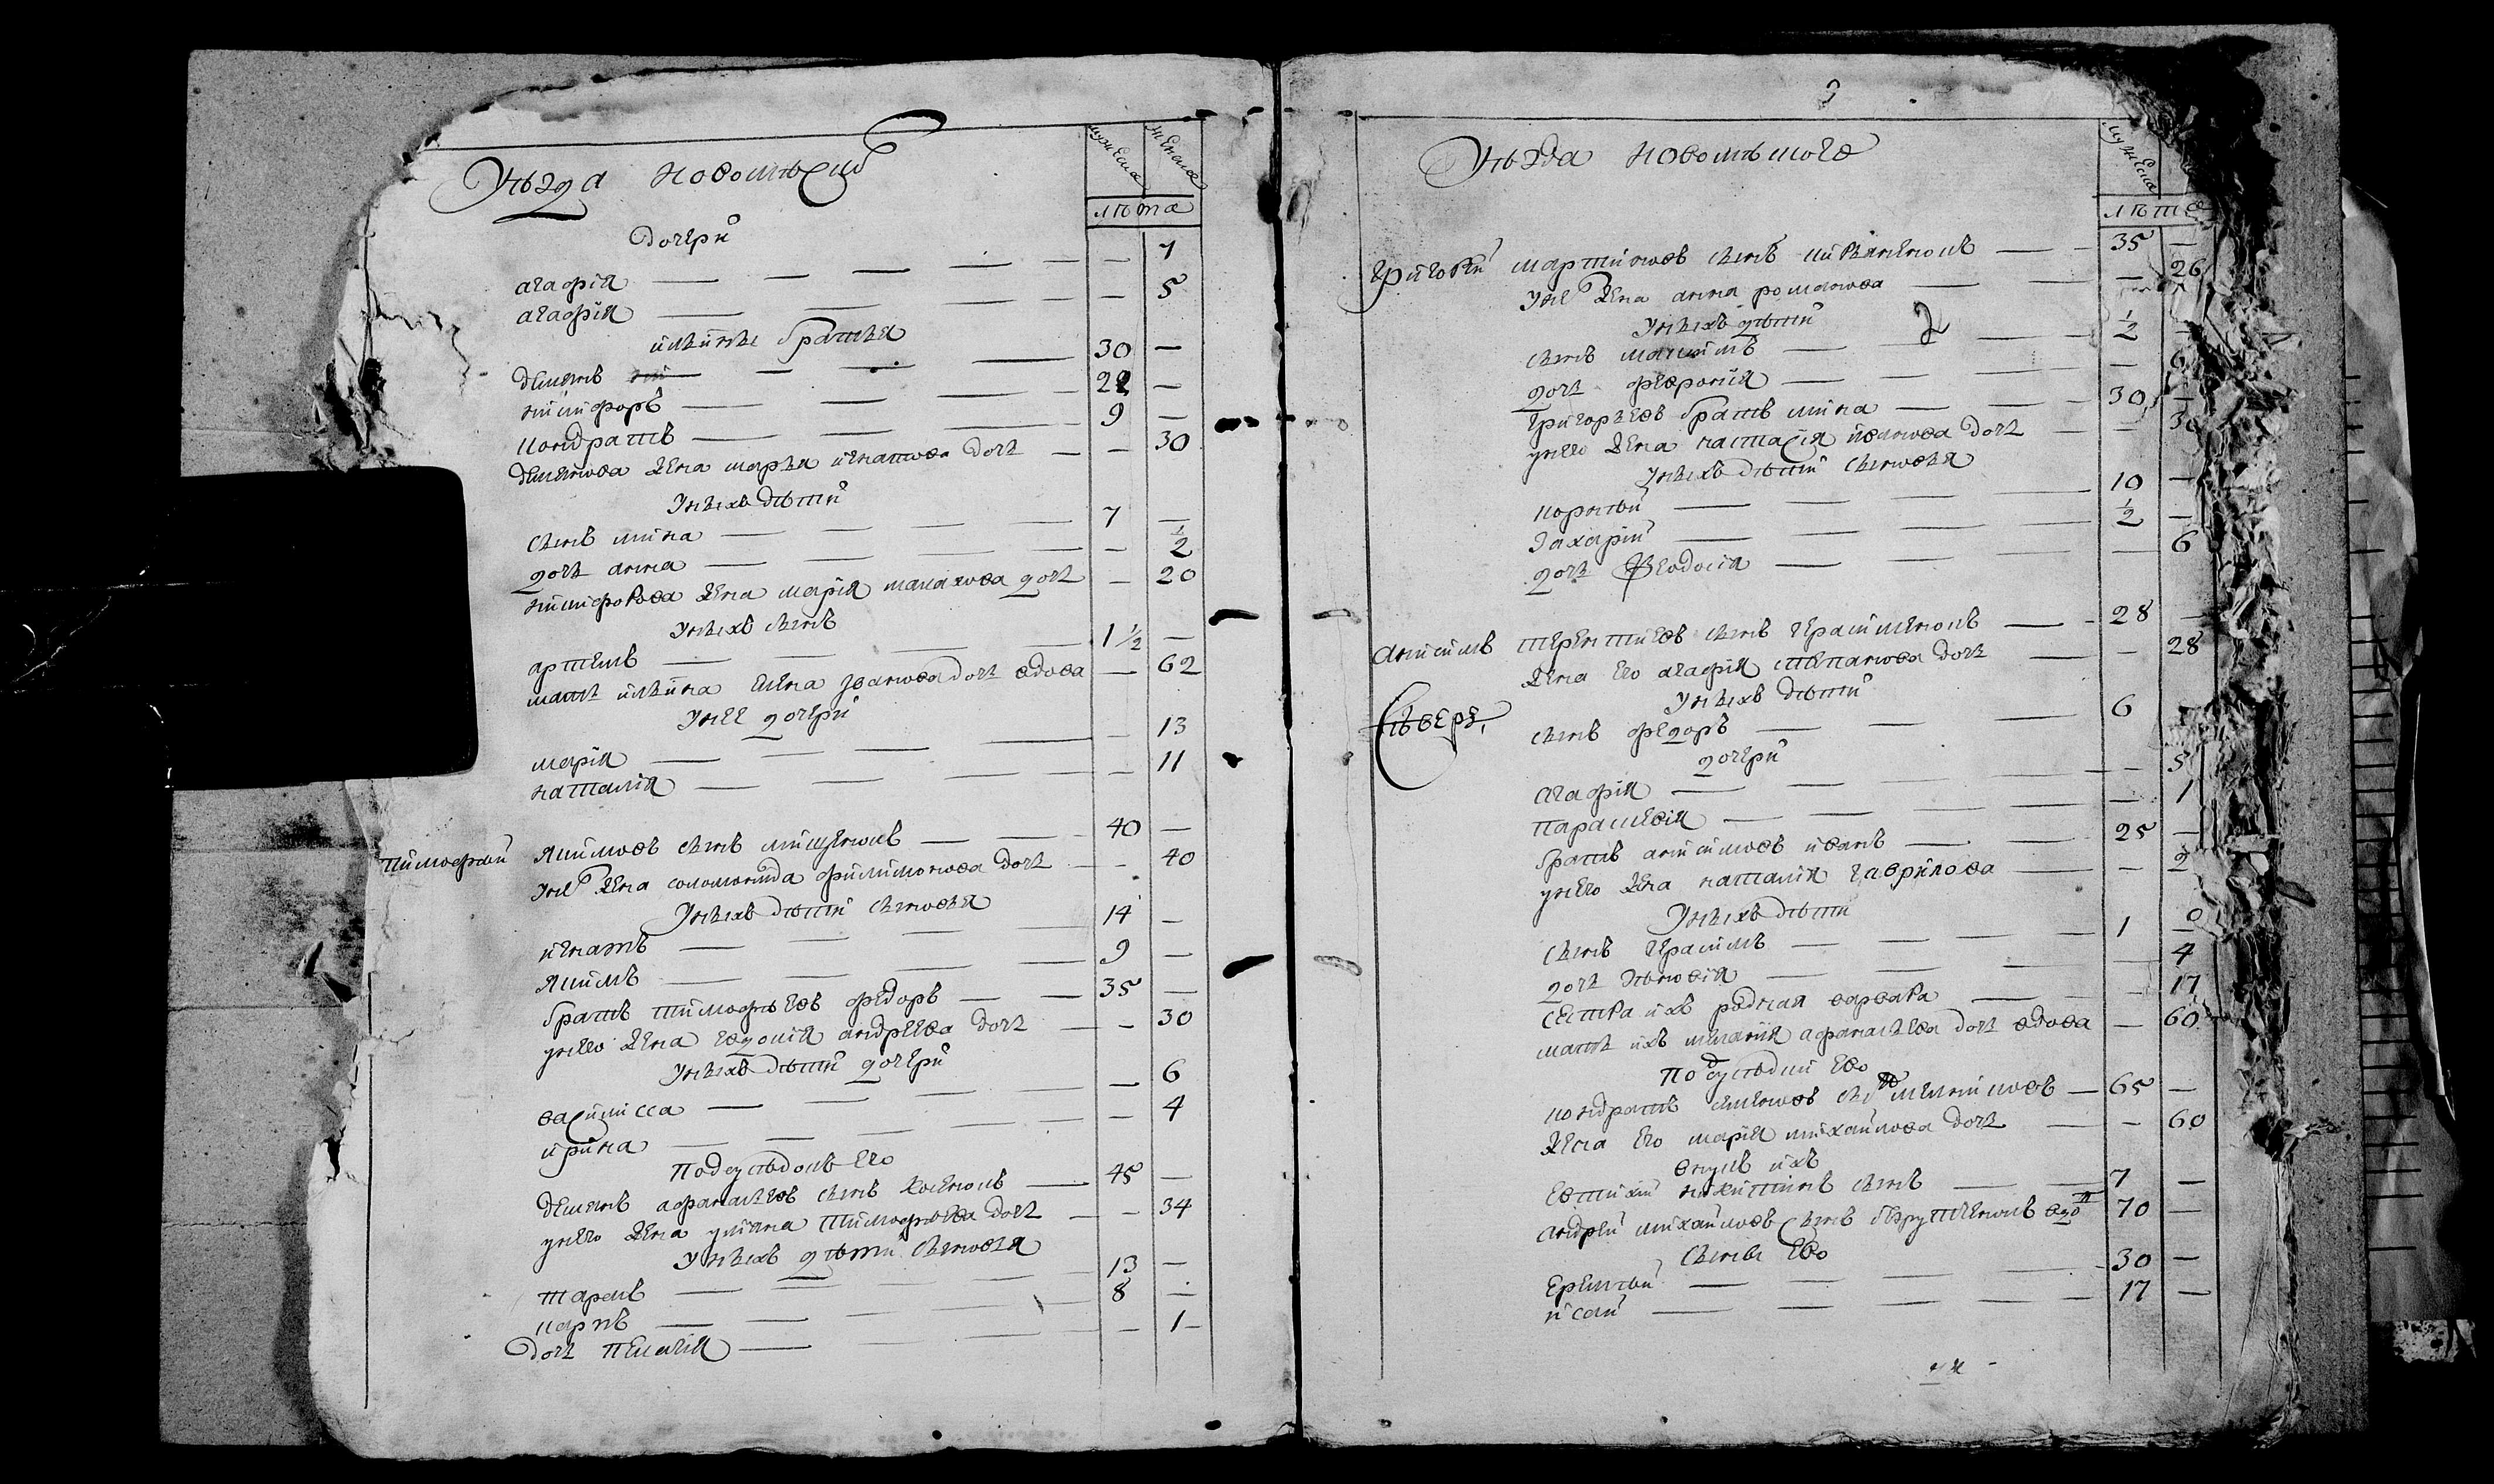 мужеска женска
Уѣзда новомлѣскиⷯ
лѣта
Дочери
агафія — 7
агафія — 5
илиины братья
демянъ 30 —
никифоръ 22 —
кондратъ 9 —
демянова жена марья игнатова дочь — 30
Унихъ дѣти
сынъ мина 7 —
дочь анна — 1/2
никифорова жена марія малахова дочь — 20
Унихъ сынъ
артемъ 1 1/2 —
мать илиина елена іванова дочь вдова — 62
Унее дочери
марія — 13
наталія — 11
тимофѣй якимовъ сынъ 40 —
Унегѡ жена соломонида филимонова дочь — 40
Унихъ дѣти сыновья
игнатъ 14 —
якимъ 9 —
братъ тимофѣевъ федоръ 35 —
унего жена евдокія андреева дочь — 30
Унихъ дѣти дочери
василисса — 6
ирина — 4
Подсусѣдокъ его
демянъ афанасьевъ сынъ 45 —
унего жена уліяна тимофѣева дочь — 34
Унихъ дѣти сыновья
тарасъ 13 —
карпъ 8 —
дочь пелагія — 1
мужеска
Уѣзда новомлѣского
лѣта
григорій мартиновъ сынъ 35 —
Унегѡ жена анна романова — 26
Унихъ дѣти
сынъ максимъ 1/2 —
дочь февронія — 6
григорьевъ братъ мина 30 —
унего жена настасія иванова дочь — 30
Унихъ дѣти сыновья
корнѣй 10 —
Захарій 1/2 —
дочь Феодосія — 6
Анисимъ терентиевъ сынъ герасименокъ 28 —
жена его агафія степанова дочь — 28
Унихъ дѣти
сынъ федоръ 6 —
дочери
Агафія — 5
параскевія — 1
братъ анисимовъ иванъ 25 —
унего жена наталія гаврилова — 2
Унихъ дѣти
сынъ герасимъ 1 —
дочь зѣновія — 4
сестра ихъ роднаѧ варвара — 17
мать ихъ меланія афанасьева дочь вдова — 60
Подсусѣдки ево
кондратъ 65 —
жена его марія михайлова дочь — 60
внукъ ихъ
евтихій никитинъ сынъ 7 —
андрей михайловъ сынъ вдоⷡ 70 —
сыны ево
еремѣй 30 —
исай 17 —